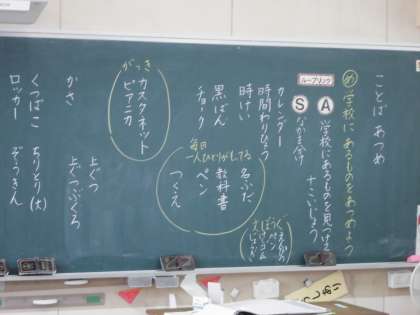 ことば あつめ
め 学校にあるものをあつめよう
ルーブリック
A 学校にあるものを見つける
十こいじょう
S なかまわけ
カレンダー
時間わりひょう
時けい
黒ばん
チョーク
毎日
一人ひとりがもってる
名ふだ
教科書
ペン
つくえ
がっき
カスタネット
ピアニカ
かさ
上ぐつ
上ぐつぶくろ
くつばこ
ロッカー
ぞうきん